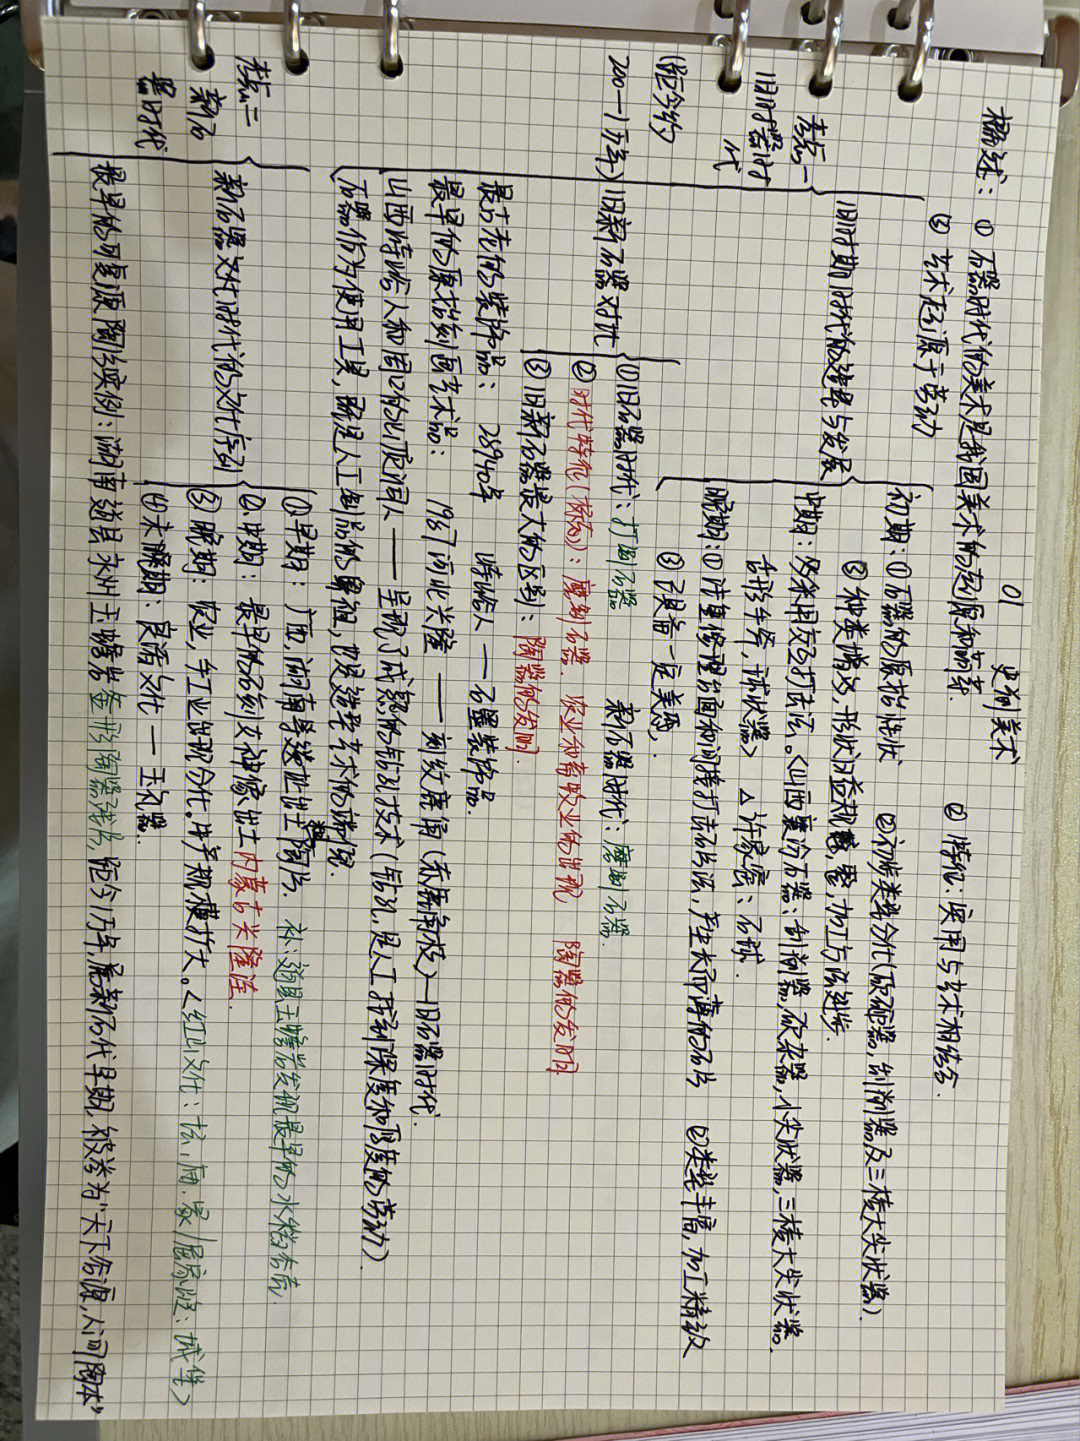 01 史前美术
概述：① 石器时代的美术是我国美术的起源和萌芽 ② 特征：实用与艺术相结合.
③ 艺术起源于劳动
考点一
旧时器时代
(距今约
200-1万年)
旧时期时代的遗器与发展
初期：①石器的原始性状 ②初步类器分化(砍砸器,刮削器及三棱大尖状器).
③种类增多,形状日益规整,加工方法进步.
中期：多采用交互打击法.<山西襄汾石器:刮削器,砍砸器,小尖状器,三棱大尖状器.
古形手斧,球状器> △许家窑：石球.
晚期：①什里修理台面和间接打击的法,产生长而薄的石片 ②类型丰富,加工精致
③已具有一定美感,
旧新石器对比
①旧石器时代：打制石器 新石器时代：磨制石器.
②时代特征(标志)：磨制石器. 农业和畜牧业的出现 陶器的发明
③旧新石器最大的区别：陶器的发明.
最古老的装饰品：28940年 峙峪人 — 石墨装饰品.
最早的原始刻画艺术品：1987河北兴隆 —— 刻纹鹿角 (赤鹿角枝) — 旧石器时代.
山西峙峪人和周口的山顶洞人 —— 呈现了成熟的钻孔技术 (钻孔,是人工控制深度和厚度的劳动).
石器作为使用工具,既是人工制品的鼻祖,也是造型艺术的滥觞.
考点二
新石
器时代
新石器文化时代的文化序列
①早期：广西,湖南等遗址出土陶片. 补：道县玉蟾岩发现最早的水稻标本.
②中期：最早的石刻女神像出土内蒙古兴隆洼.
③晚期：农业,手工业出现分化.生产规模扩大。<红山文化：坛,庙,冢 / 屈家岭：城垡>
④末晚期：良渚文化 — 玉礼器.
最早的可复原陶器实例：湖南道县永州玉蟾岩釜形陶器为代,距今1万年,属新石代早期,被誉为"天下谷源,人间陶本"